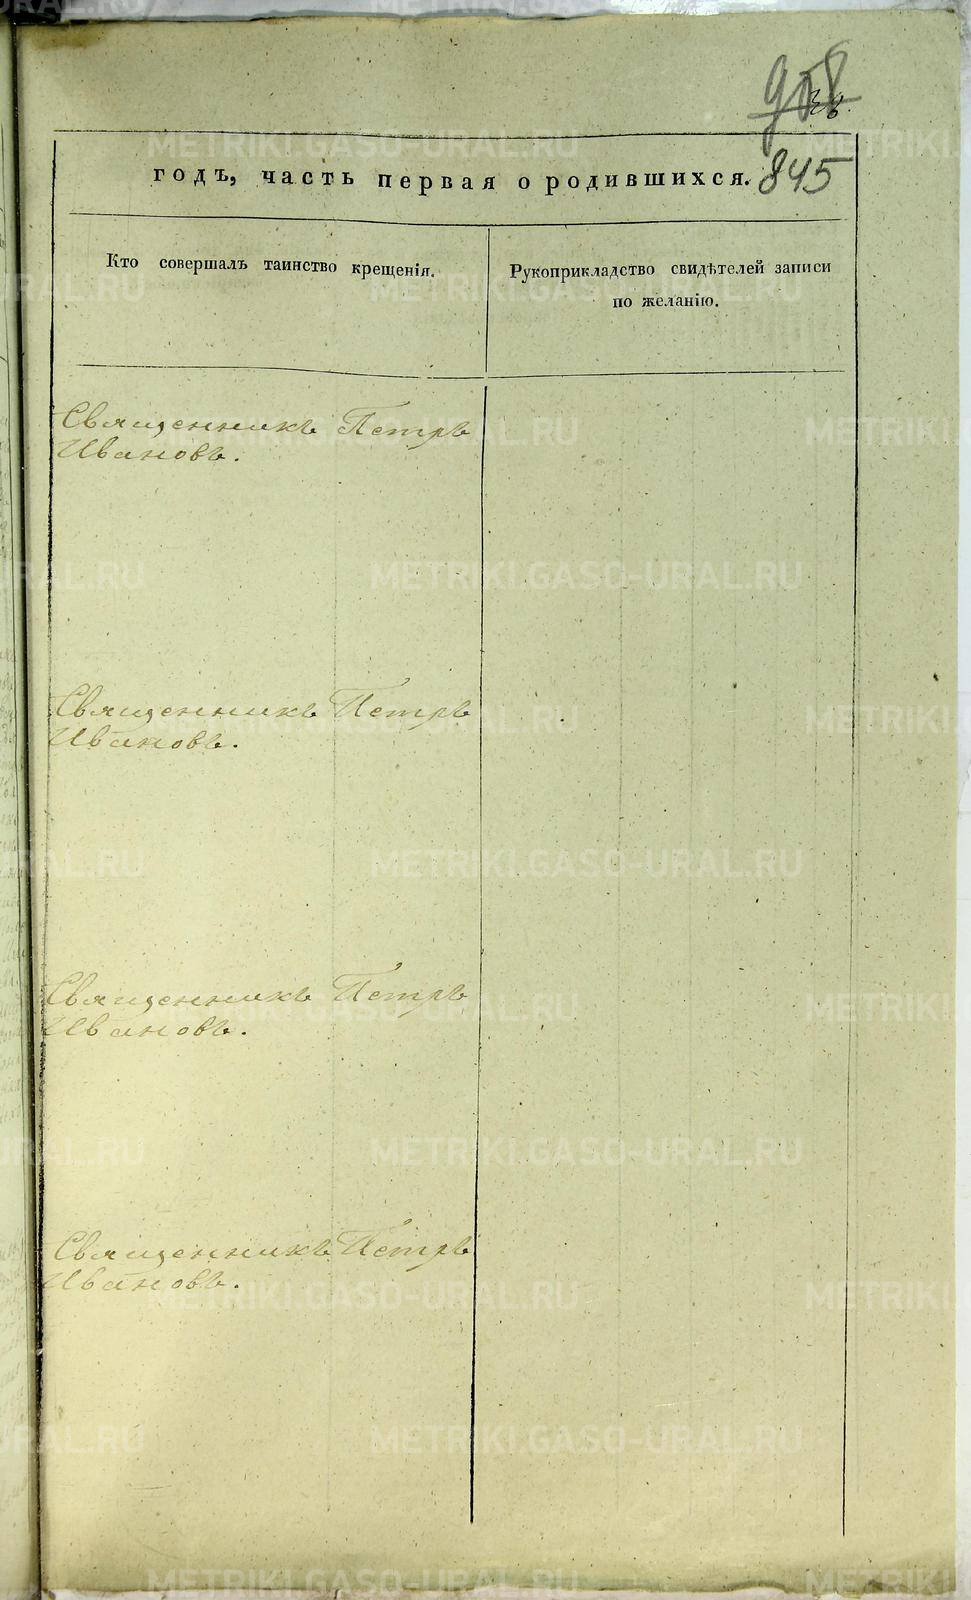 908
38.
845
годъ, часть первая о родившихся.
Кто совершалъ таинство крещенія.
Рукоприкладство свидѣтелей записи
по желанію.
Священникъ Петръ
Ивановъ.
Священникъ Петръ
Ивановъ.
Священникъ Петръ
Ивановъ.
Священникъ Петръ
Ивановъ.
METRIKI.GASO-URAL.RU